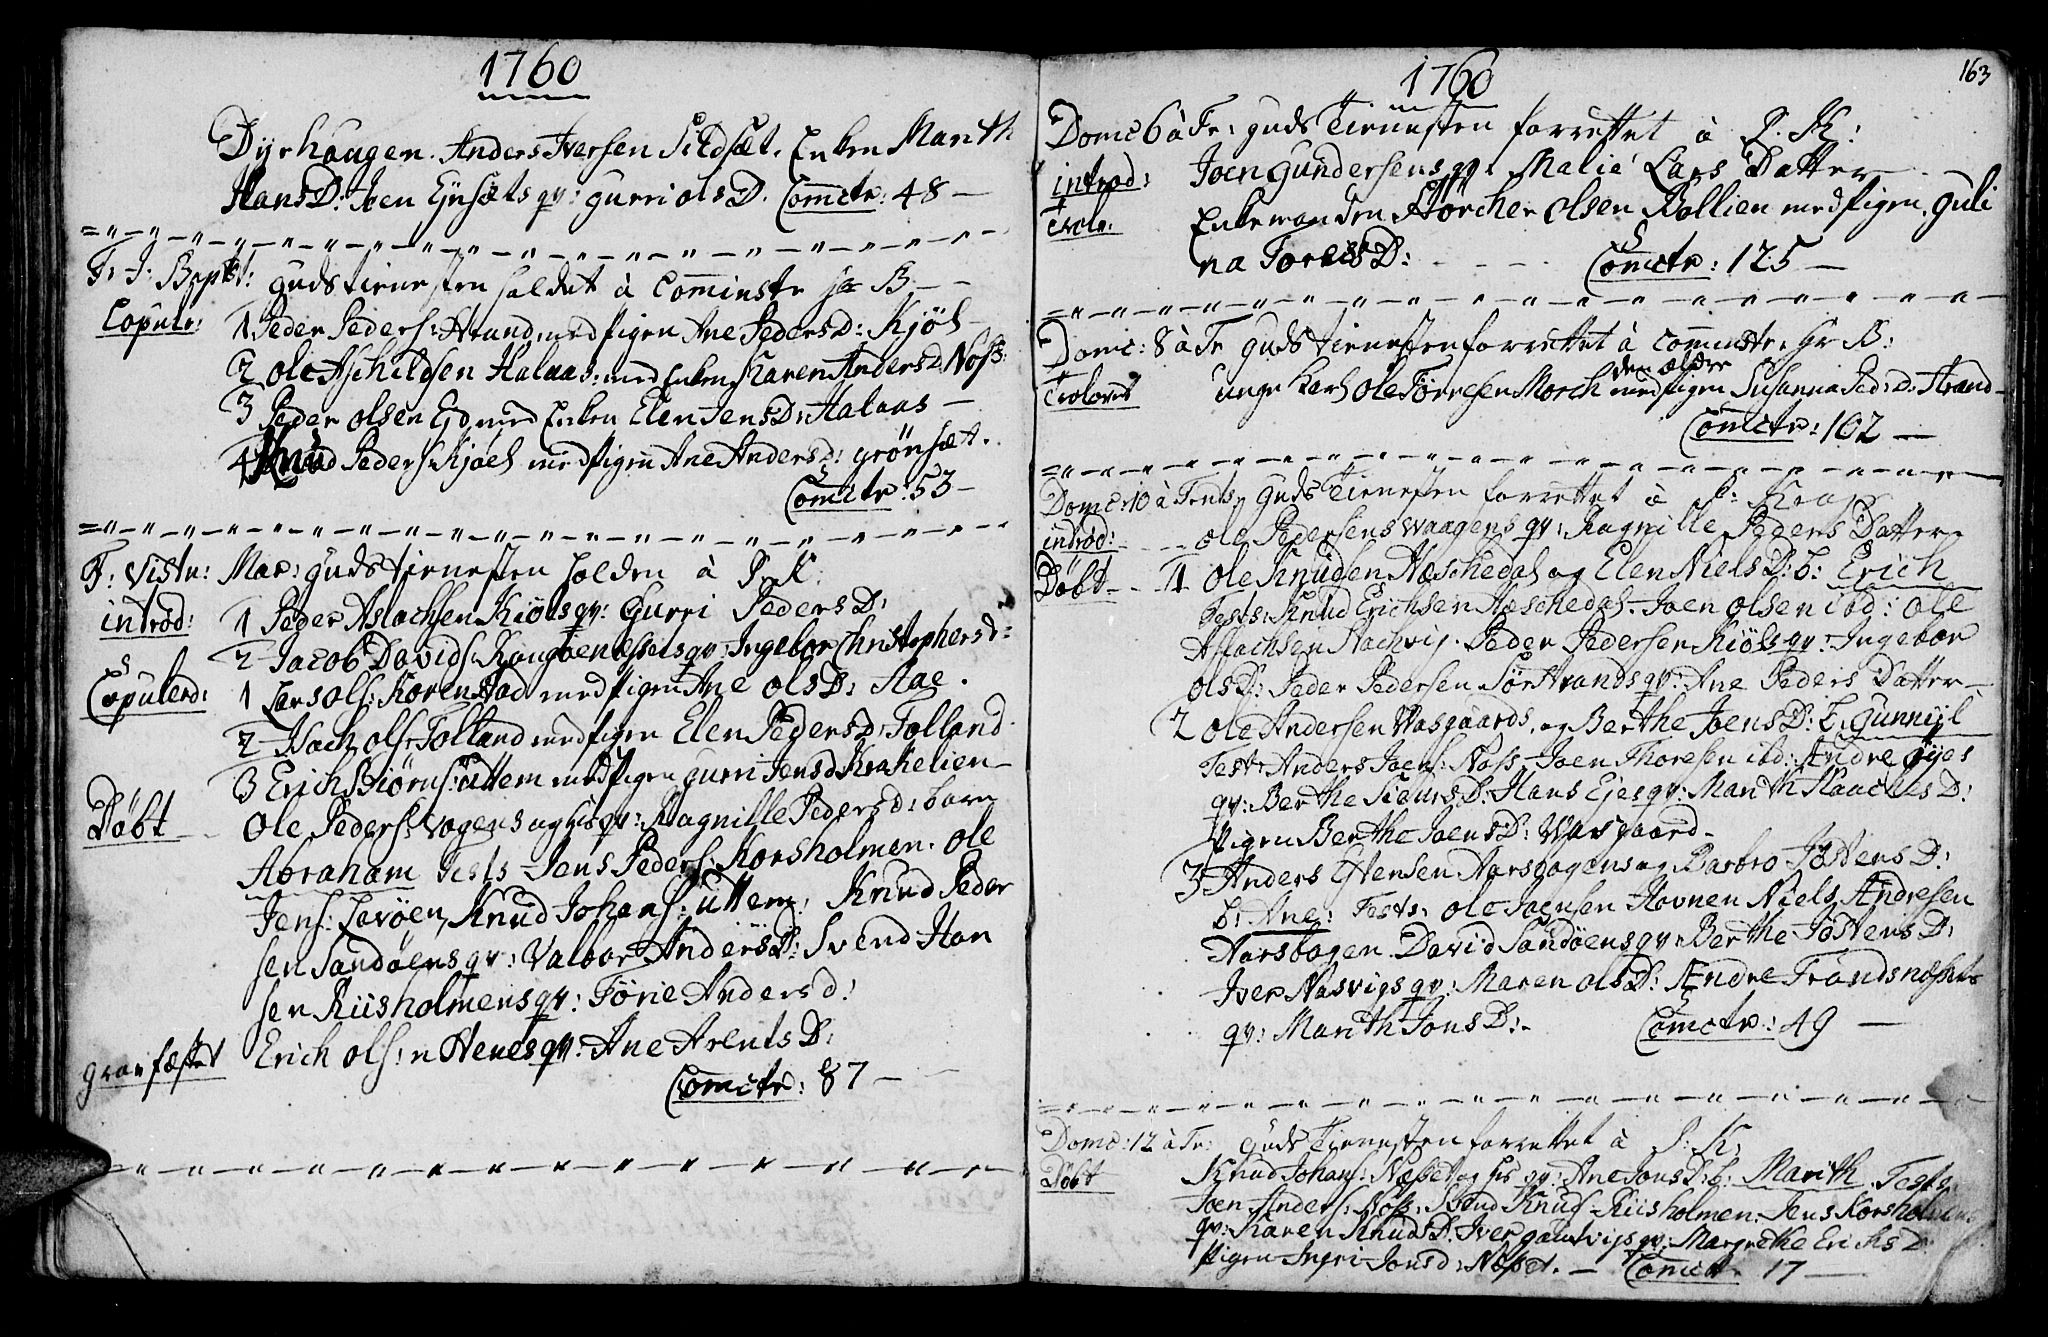 1760
Dyrhaugen. Anders Iversen Sildsæt. Enken Marith
HansD: Joen Eyjsæts qv: Gurri olsD. Comctr: 48 —
F: J: Bapt: Guds tienesten holdet à Comministr hr B —
Copuler: 1 Peder Peders: Strand, med Pigen Ane PedersD: Kjöl —
2 Ole Aschildsen Halaas: med Enken Karen AndersD Noss:
3 Peder olsen Eid med Enken Elen JensD: Halaas —
4 Knud Peders: Kjöel med Pigen Ane AndersD: Grönsæt.
Comctr: 53 —
F: Vistn: Mar: Guds tienesten holden à P. K:
introd: 1 Peder Aslachsen Kiöls qv: Gurri PedersD:
2 Jacob Davids: qv: Ingebor Christophersd:
Copulerd: 1 Lars ols: Korenstad med Pigen Ane olsD: Aae.
2 Hach ols: Tolland med Pigen Elen PedersD: Tolland
3 Erich Biörns: uttem med Pigen Gurri JensD Krakelien —
Döbt — Ole Peders: Vogens og his qv: Magnille PedersD: barn
Abraham Tests Jens Peders: Korsholmen. Ole
Jens: Lavöen, Knud Johans: uttem: Knud Peder
sen Sandöens qv: Valbor AndersD: Svend Han
sen Riisholmens qv: Törie Andersd:
graefæstet Erich ols: n Henes qv: Ane ArentsD:
Comctr: 87 —
1760
163
Domc 6 à Tr: Guds Tienesten forrettet à P. K:
introd: Joen Gundersens qv: Malie Lars Datter —
trolv. Enkemanden Störcher Olsen Bollien med Pigen Guli
na ToresD: — — — Comctr: 125 —
Domc: 8 à Tr Guds tienesten forrettet à Comminstr: Hr B:
den ældre
Trolovet unge Karl Ole Törresen Morch med Pigen Susanna Ped:D: Strand —
Comctr: 102 —
Domc: 10 à Trnts, Guds Tienesten forrettet à P: K
introd: — ole Pedersens Waagens qv: Ragnille Peders Datter
Döbt — 1 Ole Knudsen Æschedal og Elen NielsD: b: Erich
Tests: Knud Erichsen Æschedal. Joen olsen ibd: Ole
Aslachsen Nachvig. Peder Pedersen Kiöls qv: Ingebor
olsD: Peder Pedersen Sör Strands qv: Ane Peders Datter —
2 Ole Andersen Vasgaards, og Berthe JoensD: b, Gunniil
Test: Anders Joens: Noss. Joen Thoresen ibd: Andre öyes
qv: Berthe SiursD: Hans Ejes qv: Marith HaachesD:
Pigen Berthe JoensD: Vasgaard —
3 Anders Estensen Aarsbogens og Barbro JostensD:
b: Ane: Tests: Ole Joensen Hovnen Niels Andresen
Aarsbogen. David Sandöens qv: Berthe JöstensD:
Iver Nasvigs qv: Maren olsD: Andre Trandsnæssets
qv: Marith JonsD: — Comctr: 49 —
Domc: 12 à Tr: Guds Tienesten forrettet à P: K:
Döbt Knud Johans: Næsset og his qv: Ane JonsD: b: Marith. Tests
Joen Anders: Noss, Svend Knuds: Riisholmen. Jens Korsholmens
qv: Karen KnudsD: Iver qv: Margrethe ErichsD
Pigen Ingri Jonsd: Næsset. — Comct. 17 —